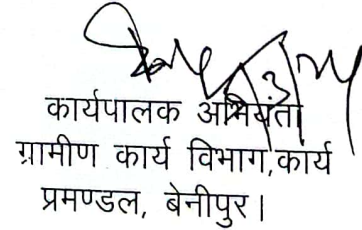 कार्यपालक अभियंता
ग्रामीण कार्य विभाग,कार्य
प्रमण्डल, बेनीपुर।